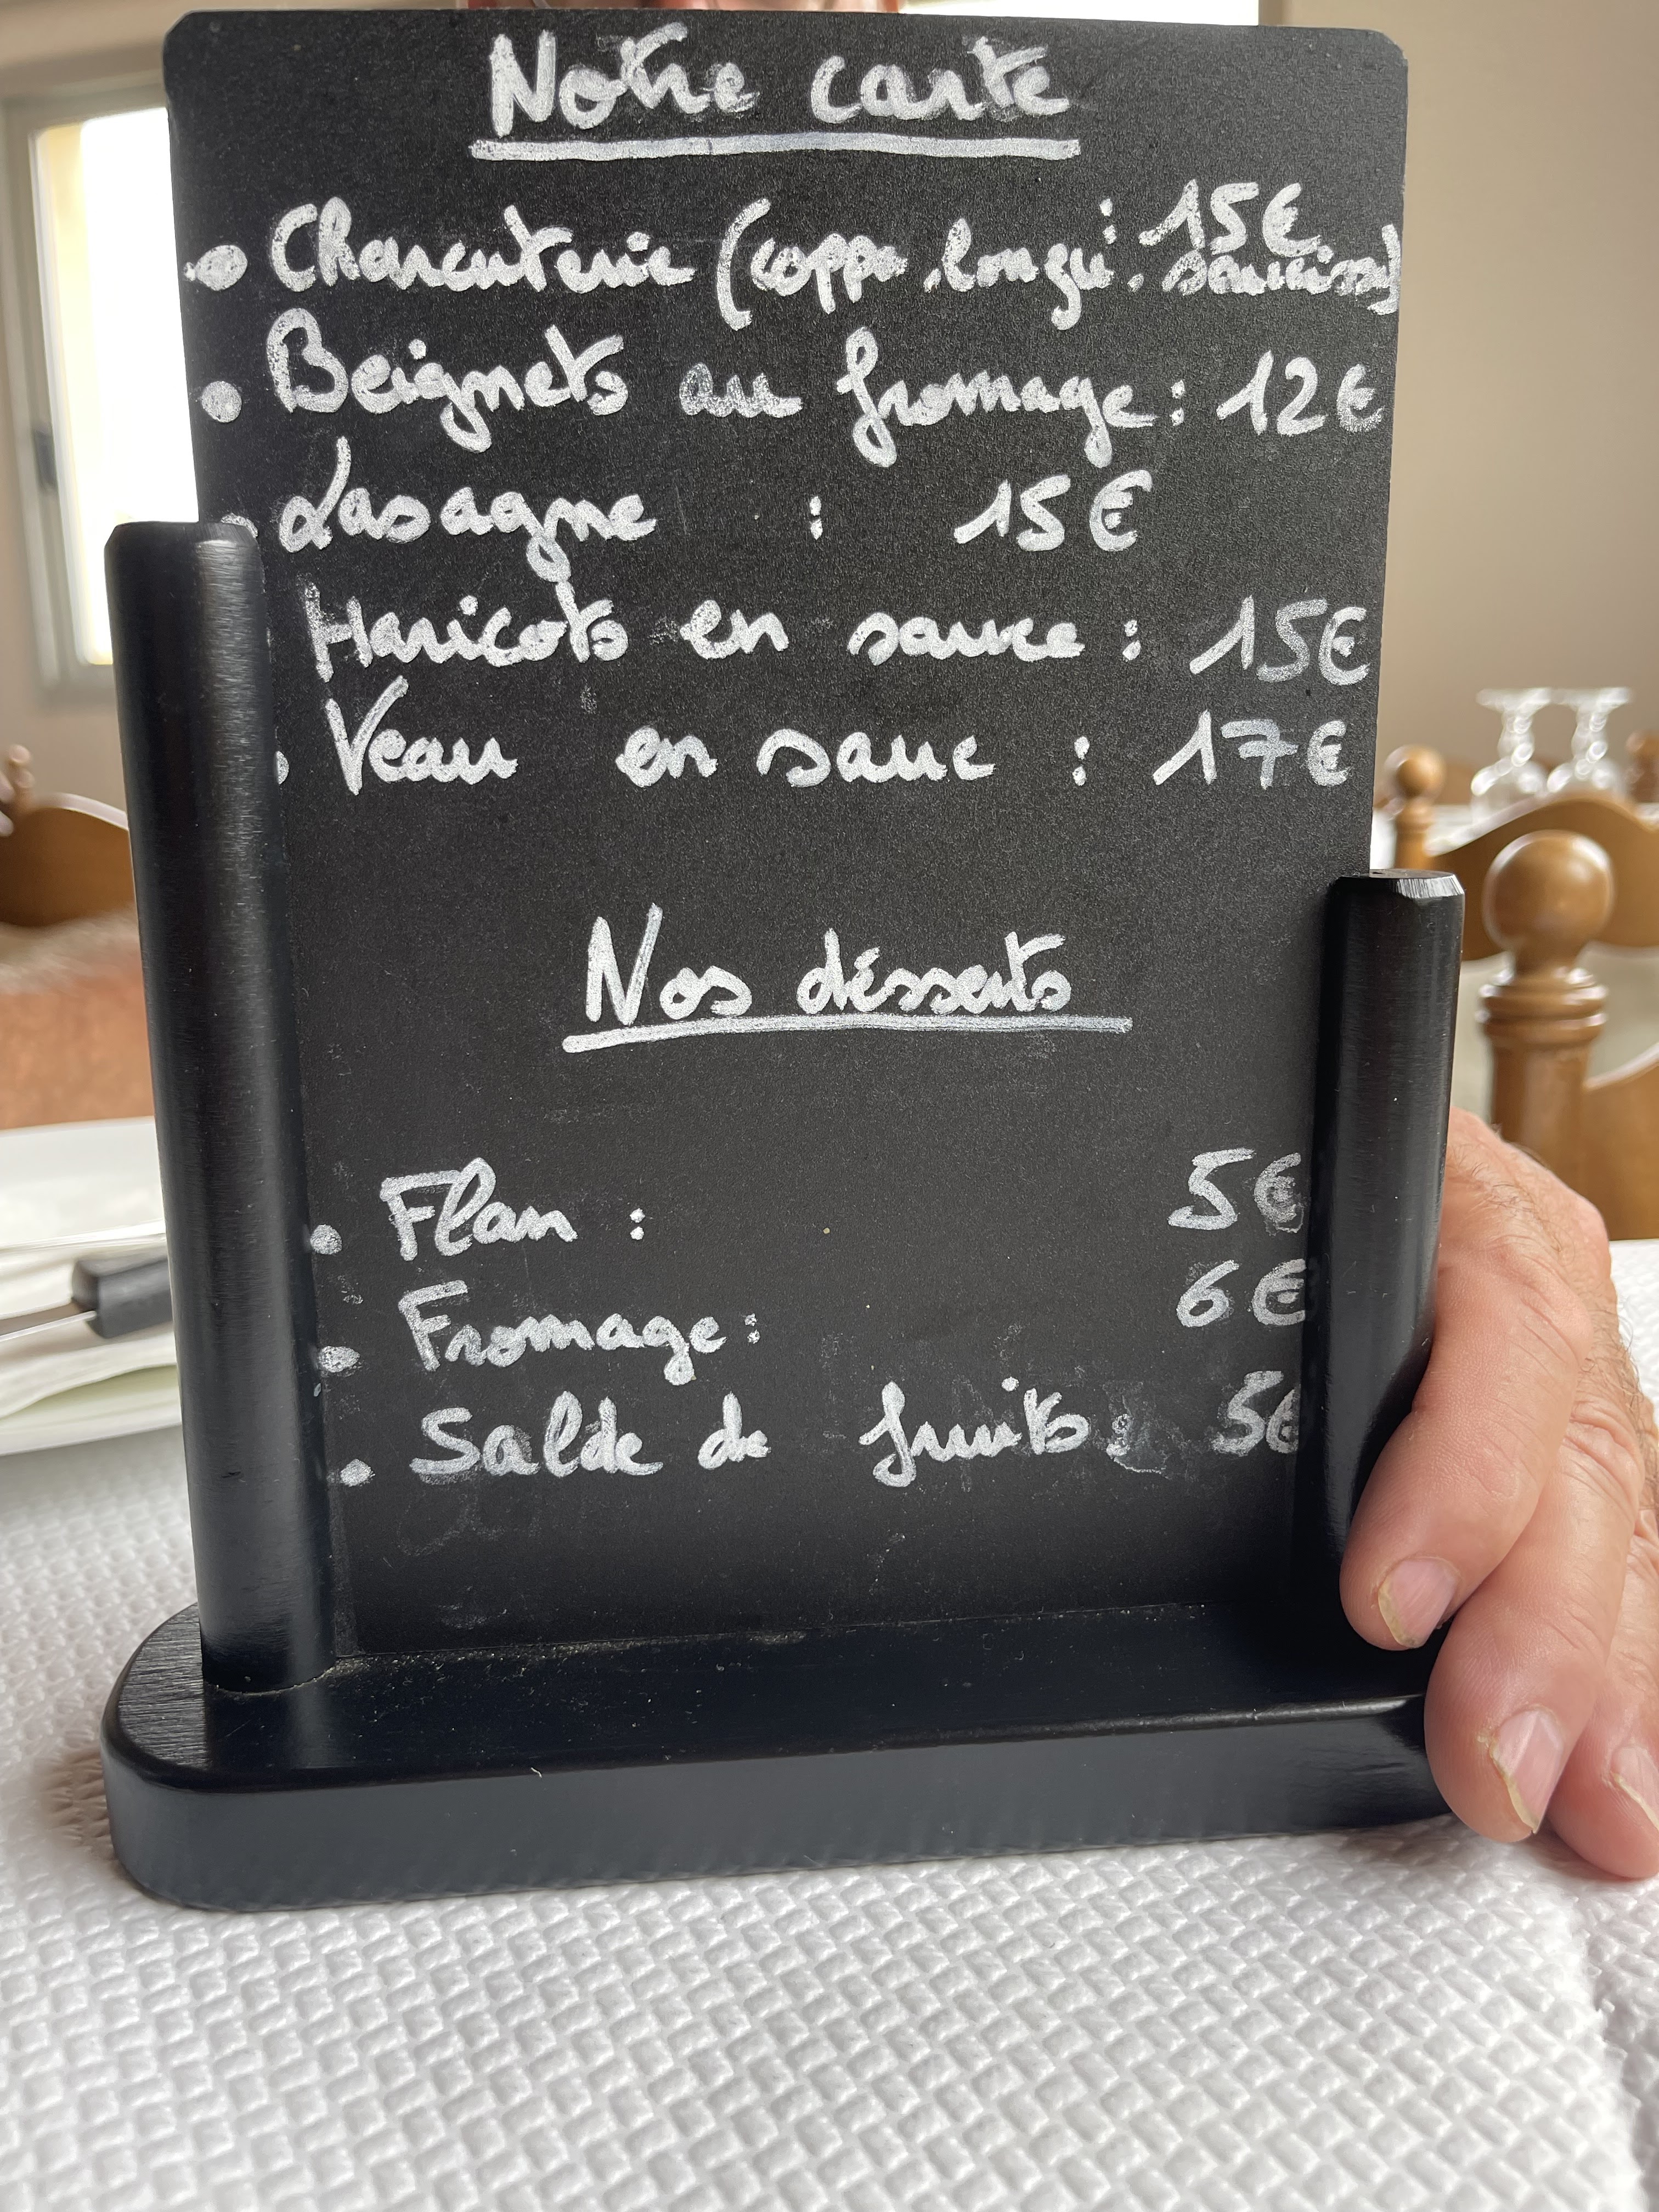 Notre carte
• Charcuterie (coppa, lonzu, saucisson) : 15€
• Beignets au fromage : 12€
• Lasagne : 15€
Haricots en sauce : 15€
• Veau en sauc : 17€
Nos désserts
• Flan : 5€
• Fromage : 6€
• Salde de fruits : 5€